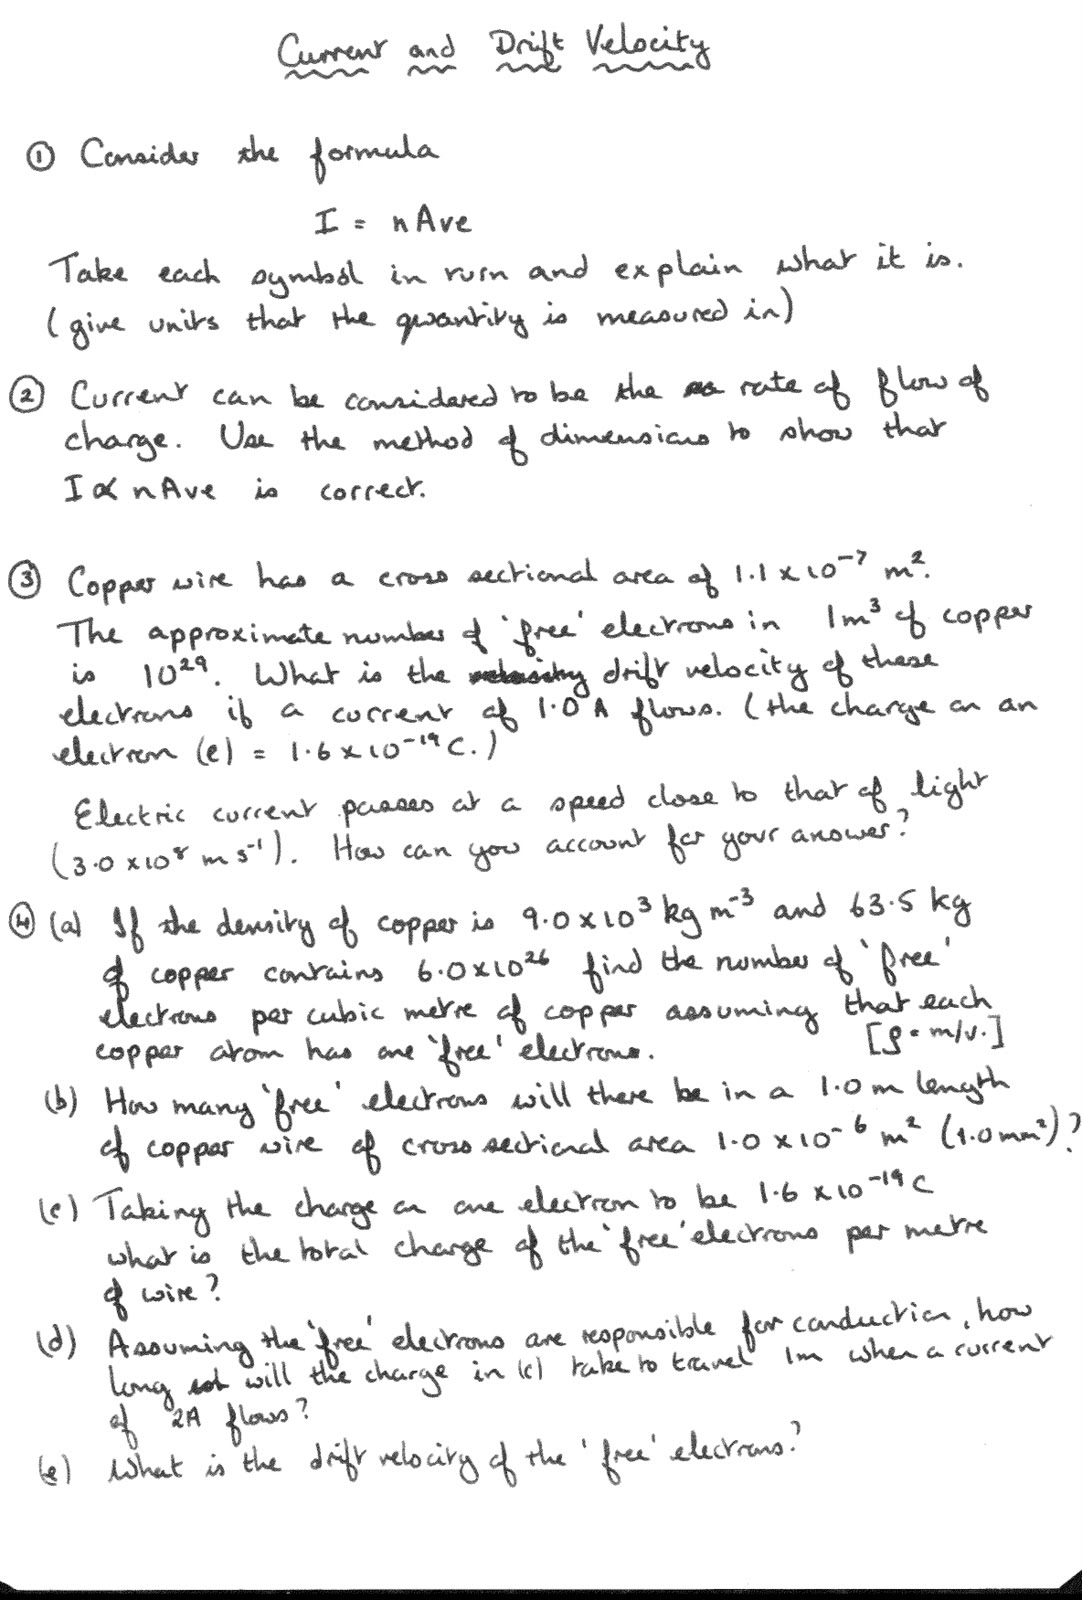 Current and Drift Velocity
① Consider the formula
I = nAve
Take each symbol in rurn and explain what it is.
(give units that the quantity is measured in)
② Current can be considered to be the rate of flow of
charge. Use the method of dimensions to show that
I ∝ nAve is correct.
③ Copper wire has a cross sectional area of 1.1 x 10⁻⁷ m².
The approximate number of 'free' electrons in 1m³ of copper
is 10²⁹. What is the drift velocity of these
electrons if a current of 1.0 A flows. (the charge on an
electron (e) = 1.6 x 10⁻¹⁹ C.)
Electric current passes at a speed close to that of light
(3.0 x 10⁸ m s⁻¹). How can you account for your answer?
④ (a) If the density of copper is 9.0 x 10³ kg m⁻³ and 63.5 kg
of copper contains 6.0 x 10²⁶ find the number of 'free'
electrons per cubic metre of copper assuming that each
copper atom has one 'free' electrons. [ρ = m/v.]
(b) How many 'free' electrons will there be in a 1.0 m length
of copper wire of cross sectional area 1.0 x 10⁻⁶ m² (1.0mm²)?
(c) Taking the charge on one electron to be 1.6 x 10⁻¹⁹ C
what is the total charge of the 'free' electrons per metre
of wire?
(d) Assuming the 'free' electrons are responsible for conduction, how
long will the charge in (c) take to travel 1m when a current
of 2A flows?
(e) What is the drift velocity of the 'free' electrons?